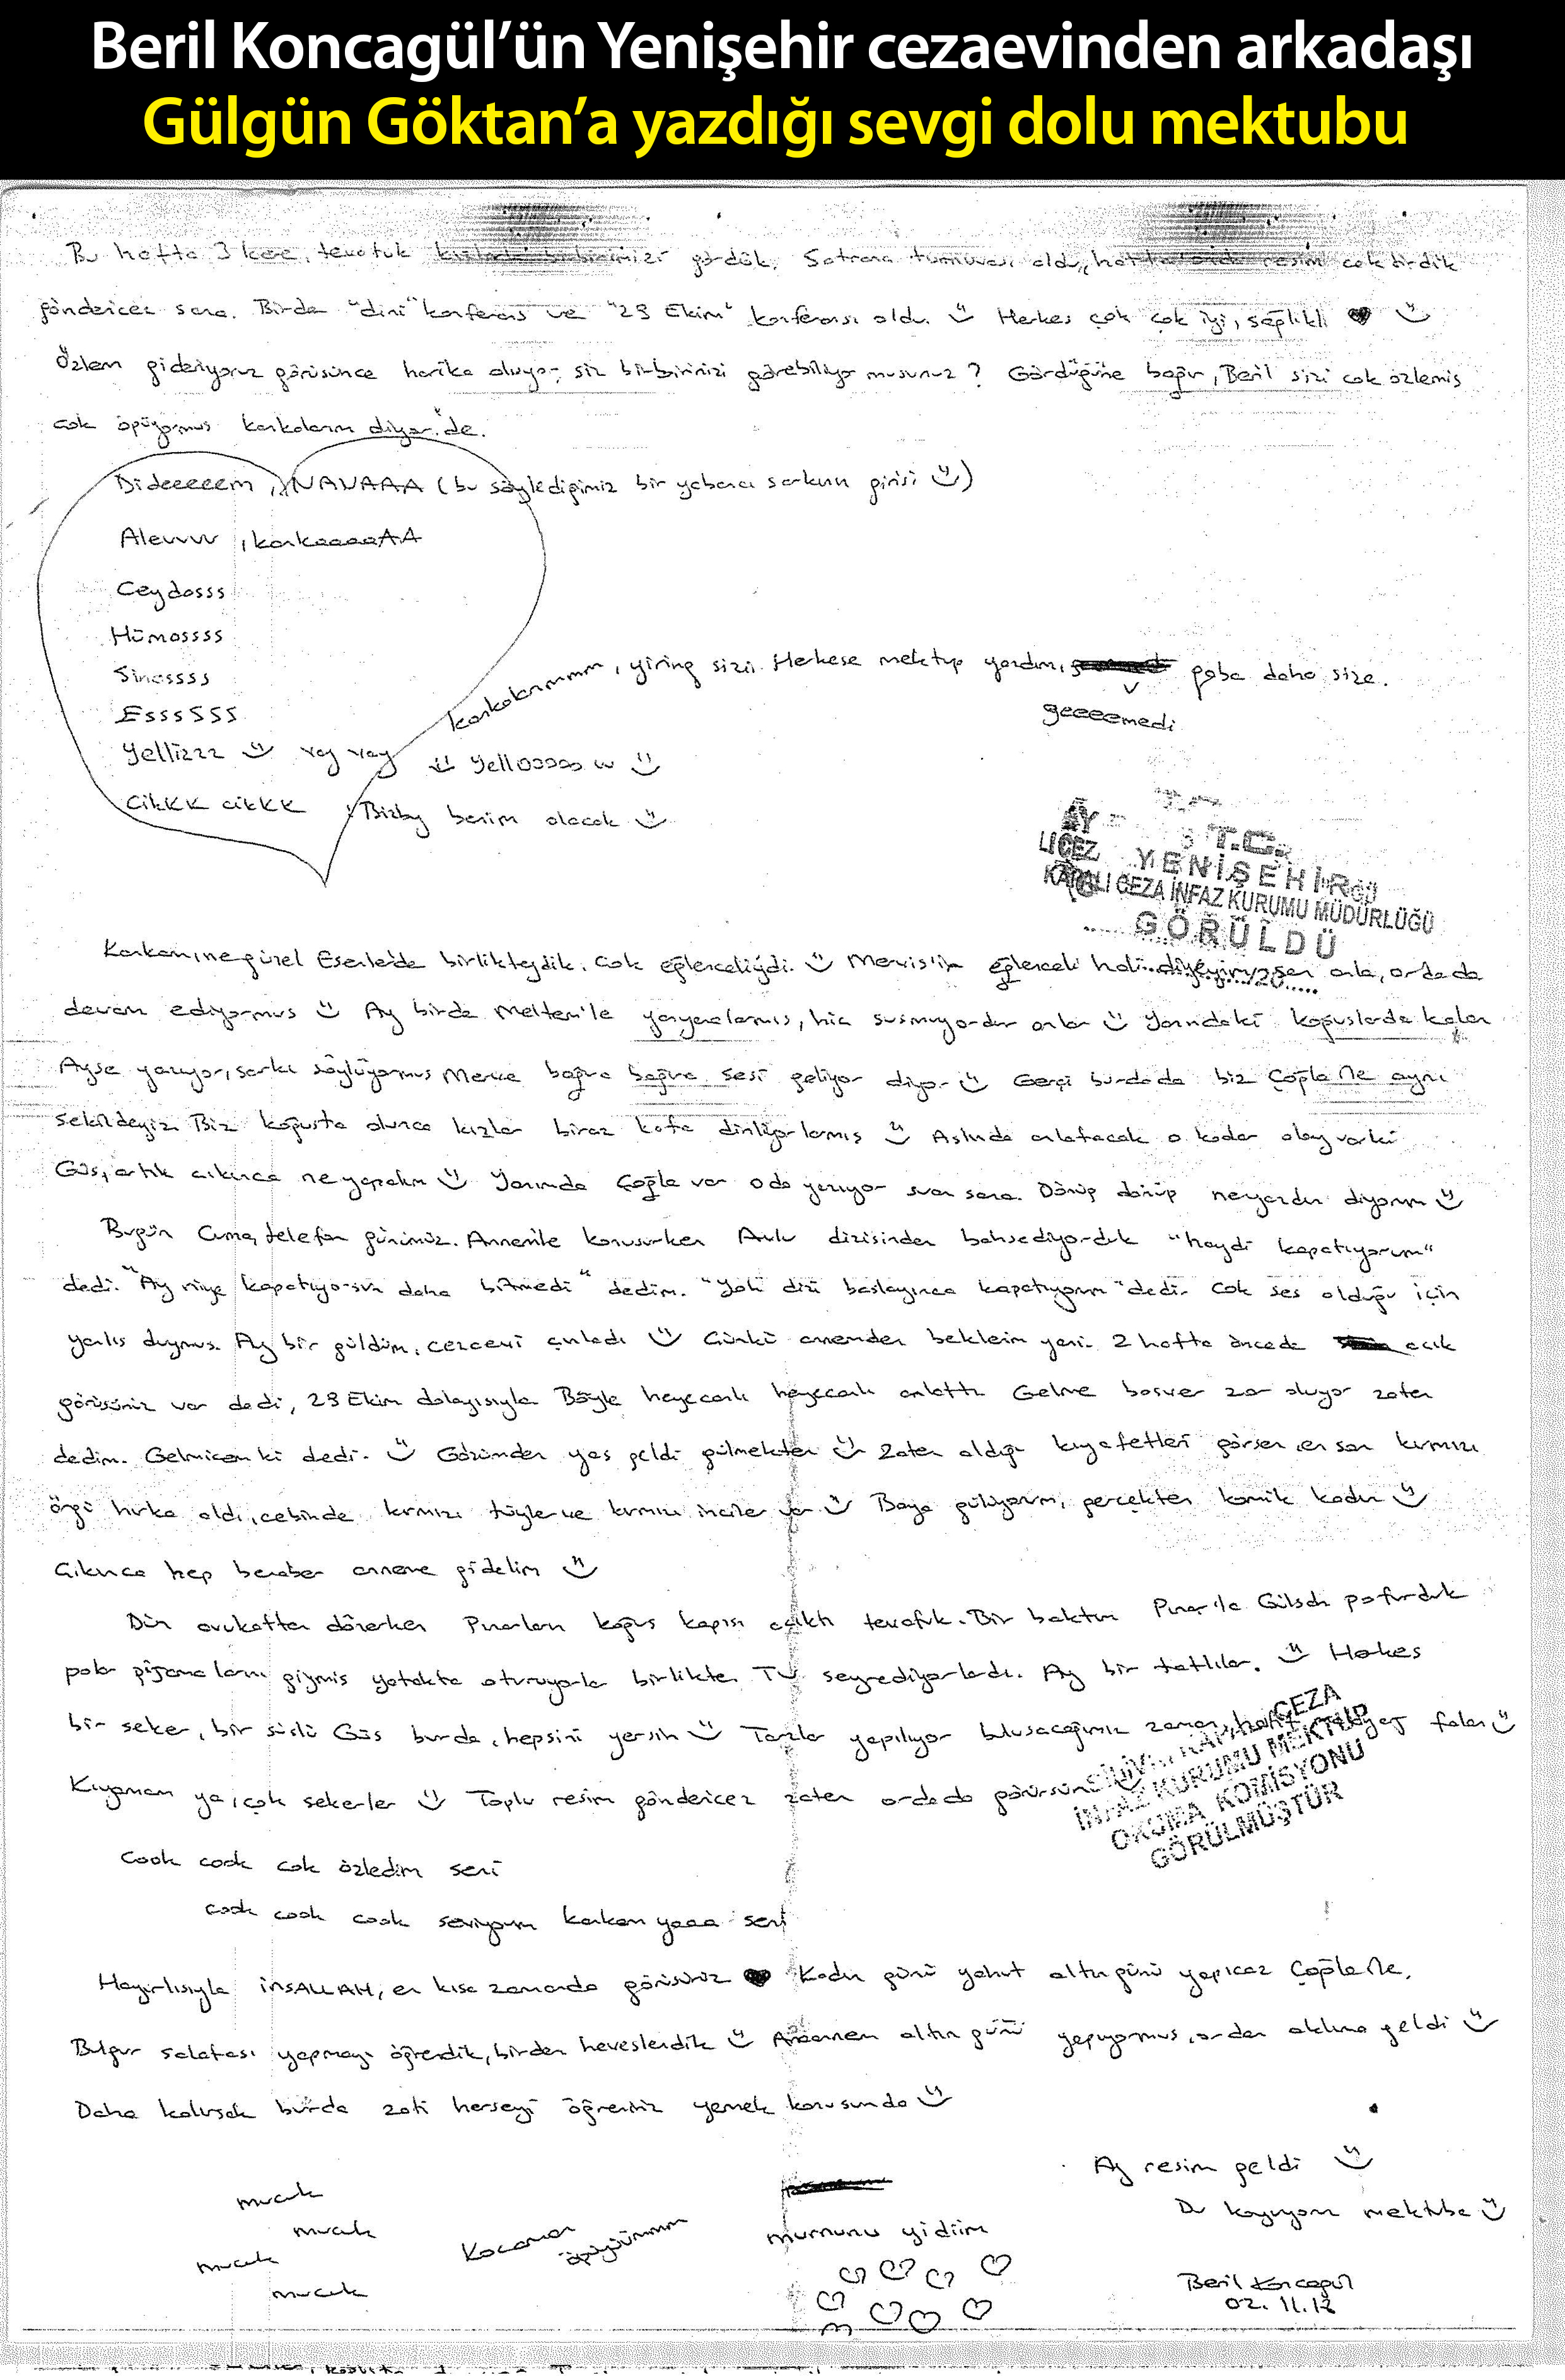 Beril Koncagül’ün Yenişehir cezaevinden arkadaşı
Gülgün Göktan’a yazdığı sevgi dolu mektubu
Bu hafta 3 kere, tevafuk birbirimizi gördük. Satranç oldu, resim cektirdik
göndericez sana. Birde "dini" konferans ve "29 Ekim" konferansı oldu. Herkes çok çok iyi, sağlıklı
Özlem gideriyoruz görüsünce harika oluyor, siz birbirinizi görebiliyo musunuz? Gördüğüne bağır, Beril sizi cok özlemis
cok öpüyormus kankalarım diyor de.
Dideeeeem, NANAAA (bu söylediğimiz bir yabancı sarkının girisi)
Alevvvv, kankaaaaAA
Ceydosss
Hümossss
Sinossss
EsssSSS
Yellizzz vay vay Yellooooo w
Cikkk cikkk Bizby benim olacak
kankalarımmmm, yirim sizi. Herkese mektup yazdım, gaba daha size.
geeeemedi
T.C.
YENİŞEHİR
KAPALI CEZA İNFAZ KURUMU MÜDÜRLÜĞÜ
GÖRÜLDÜ
Kankam, ne güzel Esenler'de birlikteydik. Cok eğlenceliydi. Mervis'in eğlenceli hali diyeyim sen anla, orda da
devam ediyormus Ay birde Meltem'le yanyanalarmıs, hic susmuyordur onlar Yanındaki kogusларda kalan
Ayse yazıyor, sarkı söylüyormus Merve bağıra bağıra sesi geliyor diyor Gerçi burda da biz Çağla ile aynı
sekildeyiz. Biz koğusta olunca kızlar biraz kafa dinliyorlarmıs Aslında anlatacak o kadar olay varki
Güs, artık cıkınca ne yapalım Yanımda Çağla var o da yazıyor suan sana. Dönüp dönüp ne yazdın diyorum
Bugün Cuma, telefon günümüz. Annemle konusurken Avlu dizisinden bahsediyorduk "haydi kapatıyorum"
dedi. "Ay niye kapatıyorsun daha bitmedi" dedim. "Yok dizi baslayınca kapatıyorum" dedi. Cok ses olduğu için
yanlıs duymus. Ay bir güldüm, cezaevi çınladı Günkü annemden beklerim yani. 2 hafta öncede acık
görüsünüz var dedi, 29 Ekim dolayısıyla. Böyle heyecanlı heyecanlı anlattı. Gelme bosver zor oluyor zaten
dedim. Gelmicem ki dedi. Gözümden yas geldi gülmekten Zaten aldığı kıyafetleri görsen en son kırmızı
örgü hırka aldı, cebinde kırmızı tüyler ve kırmızı inciler var Baya gülüyorum, gerçekten komik kadın
Cıkınca hep beraber anneme gidelim
Dün avukattan dönerken Pınarların koğus kapısı acıktı tevafuk. Bir baktım Pınar'la Gülsah pofurduk
polar pijamalarını giymis yatakta oturuyorlar birlikte TV seyrediyorlardı. Ay bir tatlılar. Herkes
bir seker, bir süslü Güs burda, hepsini yersin Tarzlar yapılıyor bulusacağımız zaman, hafif makyaj falan
Kıyamam ya, çok sekerler Toplu resim göndericez zaten orda da görürsün
CEZA
İNFAZ KURUMU MEKTUP
OKUMA KOMİSYONU
GÖRÜLMÜŞTÜR
Cook cook cok özledim seni
cook cook cook seviyorum kankam yaaa seni
Hayırlısıyla İNSALLAH, en kısa zamanda görüsürüz Kadın günü yahut altın günü yapıcaz Çağla ile.
Bulgur salatası yapmayı öğrendik, birden heveslendik Anneannem altın günü yapıyormus, ordan aklıma geldi
Daha kalırsak burda zati herseyi öğreniriz yemek konusunda
Ay resim geldi
Du koyuyorum mektuba
mucuk
mucuk
mucuk
mucuk
Kocaman
öpüyorummm
murnunu yidiim
Beril Koncagül
02.11.18